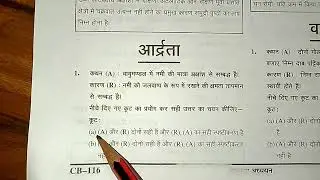 निम्न होता है।
आर्द्रता
1. कथन (A) : वायुमण्डल में नमी की मात्रा अक्षांश से सम्बद्ध है।
कारण (R) : नमी को जलवाष्प के रूप में रखने की क्षमता तापमान
से सम्बद्ध है।
नीचे दिए गए कूट का प्रयोग कर सही उत्तर का चयन कीजिए–
कूट:
(a) (A) और (R) दोनों सही हैं और (R), (A) का सही स्पष्टीकरण है
(b) (R) दोनों सही हैं और (R), (A) का सही स्पष्टीकरण
नहीं है
CB-116
अध्ययन
1. कथन
कारण
बनाए
नीचे
कूट :
(a)
(b)